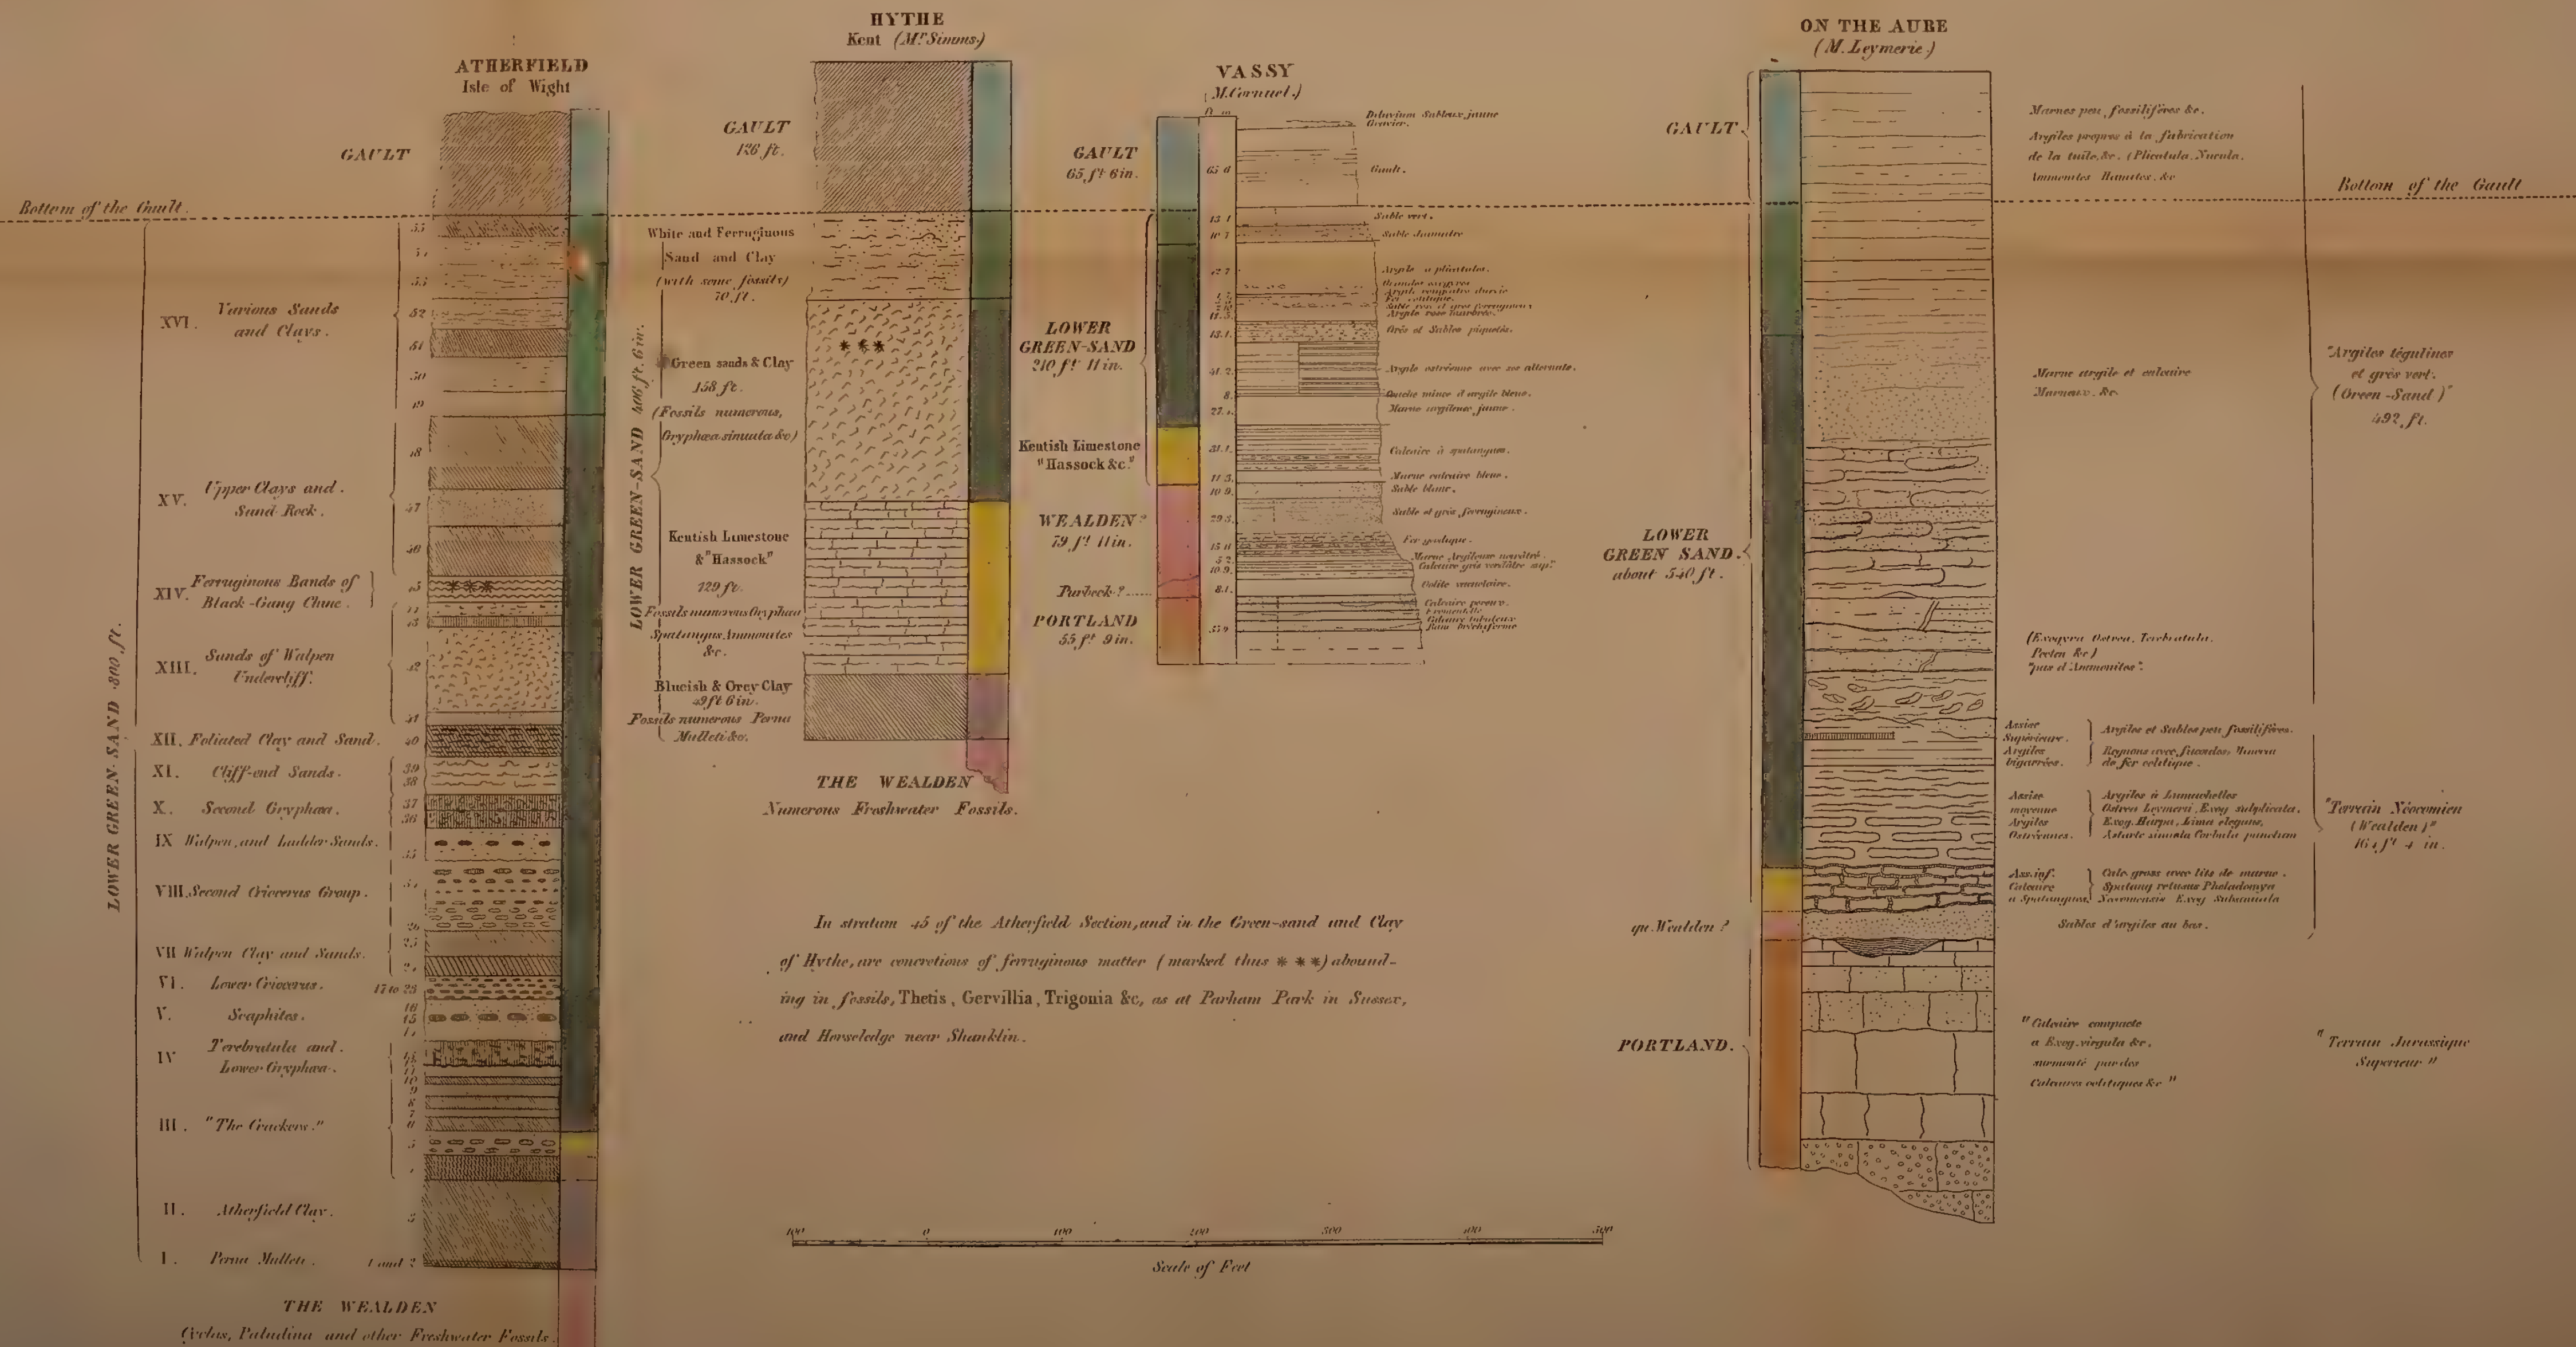 ATHERFIELD
Isle of Wight
GAULT
Bottom of the Gault.
LOWER GREEN-SAND 800 ft.
XVI. Various Sands
and Clays.
XV. Upper Clays and
Sand Rock.
XIV. Ferruginous Bands of
Black-Gang Chine.
XIII. Sands of Walpen
Undercliff.
XII. Foliated Clay and Sand.
XI. Cliff-end Sands.
X. Second Gryphæa.
IX Walpen and Ladder Sands.
VIII. Second Crioceras Group.
VII Walpen Clay and Sands.
VI. Lower Crioceras.
V. Scaphites.
IV Terebratula and
Lower Gryphæa.
III. "The Crackers."
II. Atherfield Clay.
I. Perna Mulleti.
52
51
50
19
18
47
46
42
41
40
39
38
37
36
17 to 23
16
15
10
9
8
7
6
5
1 and 2
THE WEALDEN
Cyclas, Paludina and other Freshwater Fossils.
HYTHE
Kent (Mr. Simms.)
GAULT
126 ft.
LOWER GREEN-SAND 406 ft. 6 in.
White and Ferruginous
Sand and Clay
(with some fossils)
70 ft.
Green sands & Clay
158 ft.
(Fossils numerous,
Gryphæa sinuata &c)
Kentish Limestone
& "Hassock"
129 ft.
Fossils numerous Gryphæa
Spatangus, Ammonites
&c.
Blueish & Grey Clay
49 ft 6 in.
Fossils numerous Perna
Mulleti &c.
THE WEALDEN
Numerous Freshwater Fossils.
VASSY
M. Cornuel.)
GAULT
65 ft 6 in.
LOWER
GREEN-SAND
210 ft 11 in.
Kentish Limestone
"Hassock &c."
WEALDEN?
79 ft 11 in.
Purbeck?
PORTLAND
55 ft 9 in.
65 6
Diluvium Sableux jaune
Gravier.
Gault.
Sable vert.
Sable Jaunatre
Argile a plicatules.
Grès et Sables piquetés.
Argile ostréenne avec ses alternats.
Couche mince d'argile bleue.
Marne argileuse jaune.
Calcaire à spatangues.
Marne calcaire bleue.
Sable blanc.
Sable et grès ferrugineux.
Fer géodique.
Oolite vacuolaire.
ON THE AUBE
(M. Leymerie.)
GAULT
LOWER
GREEN SAND.
about 540 ft.
qu. Wealden?
PORTLAND.
Marnes peu fossilifères &c.
Argiles propres à la fabrication
de la tuile, &c. (Plicatula. Nucula.
Ammonites Hamites. &c
Bottom of the Gault
Marne argile et calcaire
Marneux. &c.
"Argiles tégulines
et grès vert.
(Green-Sand)"
492 ft.
(Exogyra Ostrea, Terebratula.
Pecten &c)
"pas d'Ammonites".
Assise
Supérieure.
Argiles
bigarrées.
Argiles et Sables peu fossilifères.
Assise
moyenne
Argiles
Ostréennes.
Argiles à Lumachelles
Ostrea Leymerii, Exog. subplicata.
Exog. Harpa, Lima elegans,
"Terrain Néocomien
(Wealden)"
Ass. inf.
Calcaire
a Spatangues.
Calc. gross avec lits de marne.
Spatang retusus Pholadomya
Sables d'argiles au bas.
"Calcaire compacte
a Exog. virgula &c.
surmonté par des
Calcaires oolitiques &c"
"Terrain Jurassique
Superieur"
In stratum 45 of the Atherfield Section, and in the Green-sand and Clay
of Hythe, are concretions of ferruginous matter (marked thus * * *) abound-
ing in fossils, Thetis, Gervillia, Trigonia &c, as at Parham Park in Sussex,
and Horseledge near Shanklin.
100 0 100 200 300 400 500
Scale of Feet